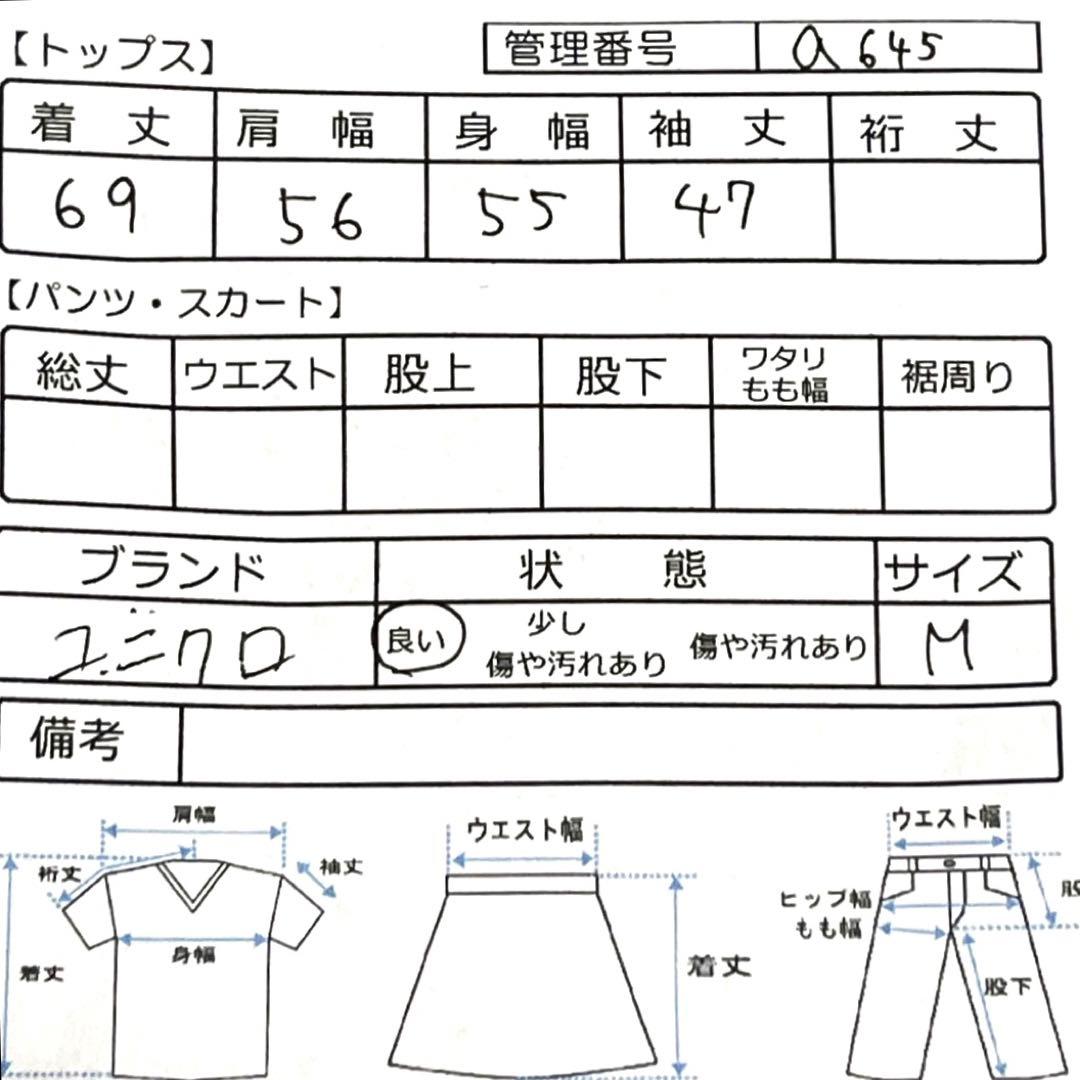 【トップス】
管理番号 a645
着丈 肩幅 身幅 袖丈 裄丈
69 56 55 47
【パンツ・スカート】
総丈 ウエスト 股上 股下 ワタリ もも幅 裾周り
ブランド 状態 サイズ
ユニクロ 良い 少し 傷や汚れあり 傷や汚れあり M
備考
肩幅
裄丈
袖丈
身幅
着丈
ウエスト幅
着丈
ウエスト幅
ヒップ幅
もも幅
股
股下